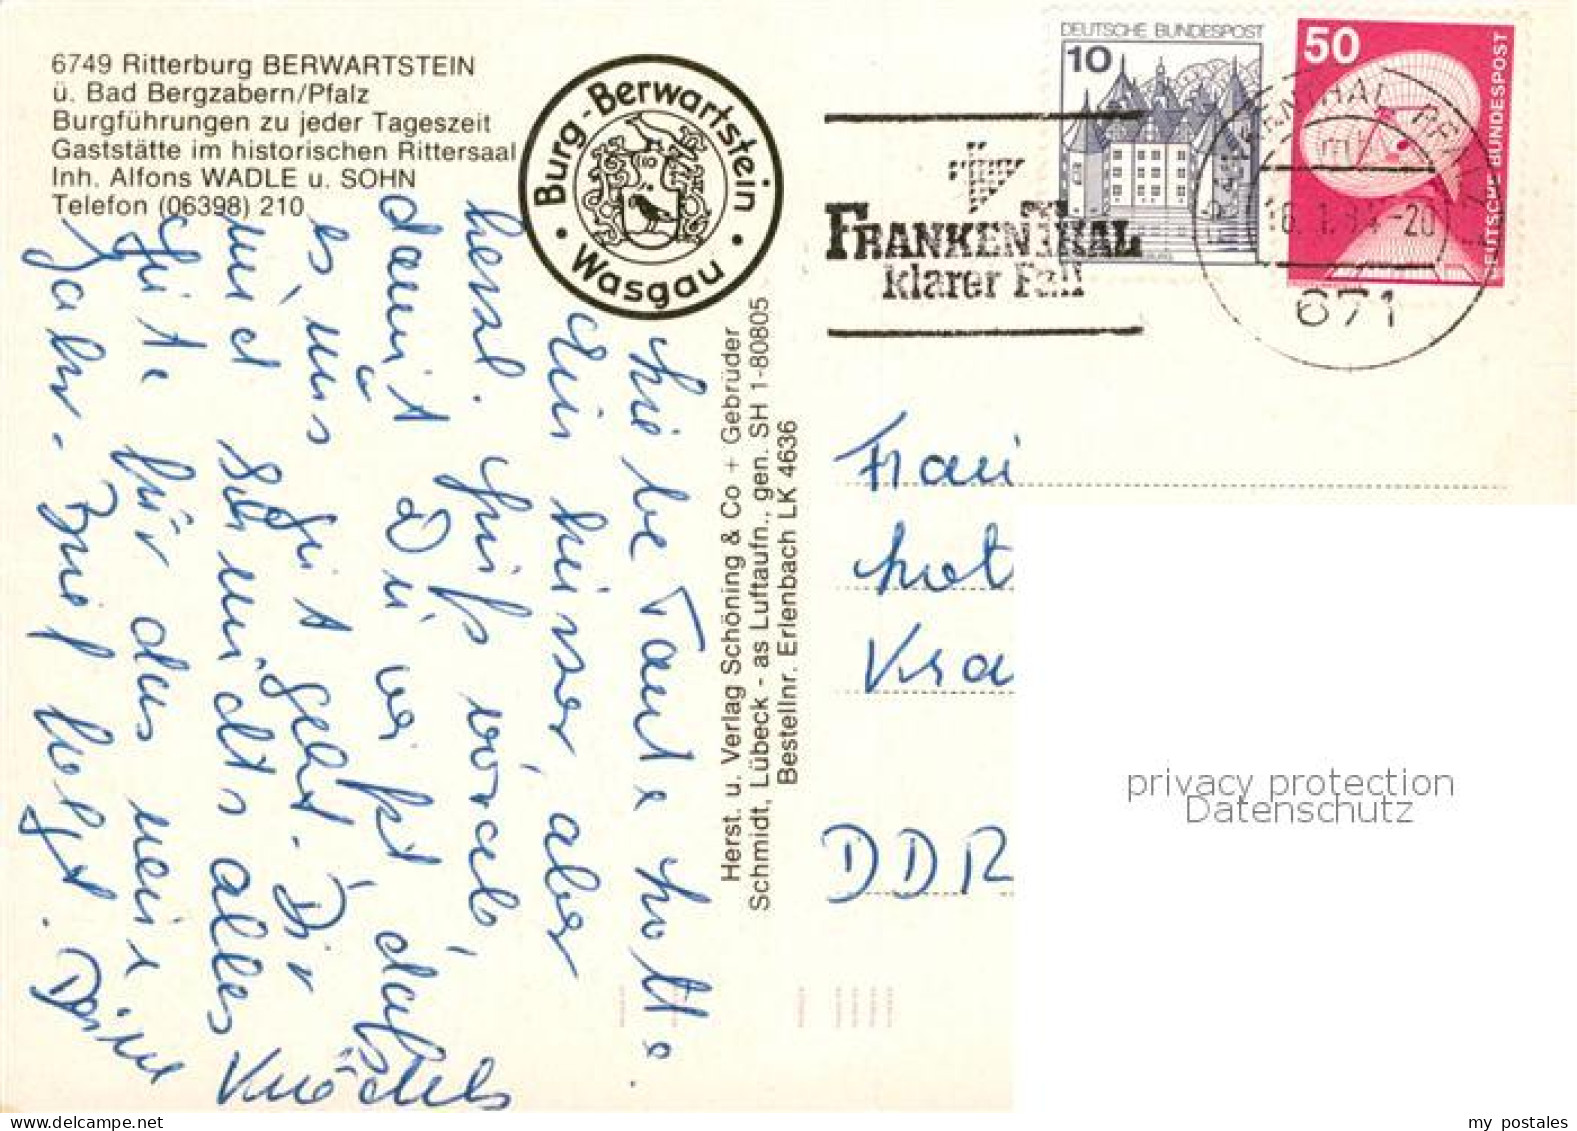 6749 Ritterburg BERWARTSTEIN
ü. Bad Bergzabern/Pfalz
Burgführungen zu jeder Tageszeit
Gaststätte im historischen Rittersaal
Inh. Alfons WADLE u. SOHN
Telefon (06398) 210
Burg-Berwartstein
• Wasgau •
DEUTSCHE BUNDESPOST
10
50
DEUTSCHE BUNDESPOST
FRANKENTHAL
klarer Fall
671
Liebe Tante Lotte.
Ein kurzer, aber
herzl. Gruß vorab,
damit Du weißt, daß
es uns gut geht. Dir
und Schmidts alles
Gute für das neue
Jahr. Brief folgt. Deine
Herst. u. Verlag Schöning & Co + Gebrüder
Schmidt, Lübeck - as Luftaufn., gen. SH 1-80805
Bestellnr. Erlenbach LK 4636
Frau
DDR
privacy protection
Datenschutz
my postales